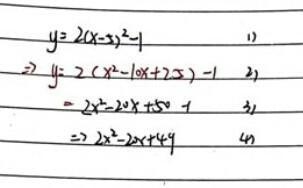 y = 2(x-5)²-1 1)
=> y = 2 (x²-10x+25) -1 2)
= 2x²-20x+50 -1 3)
=> 2x²-20x+49 4)